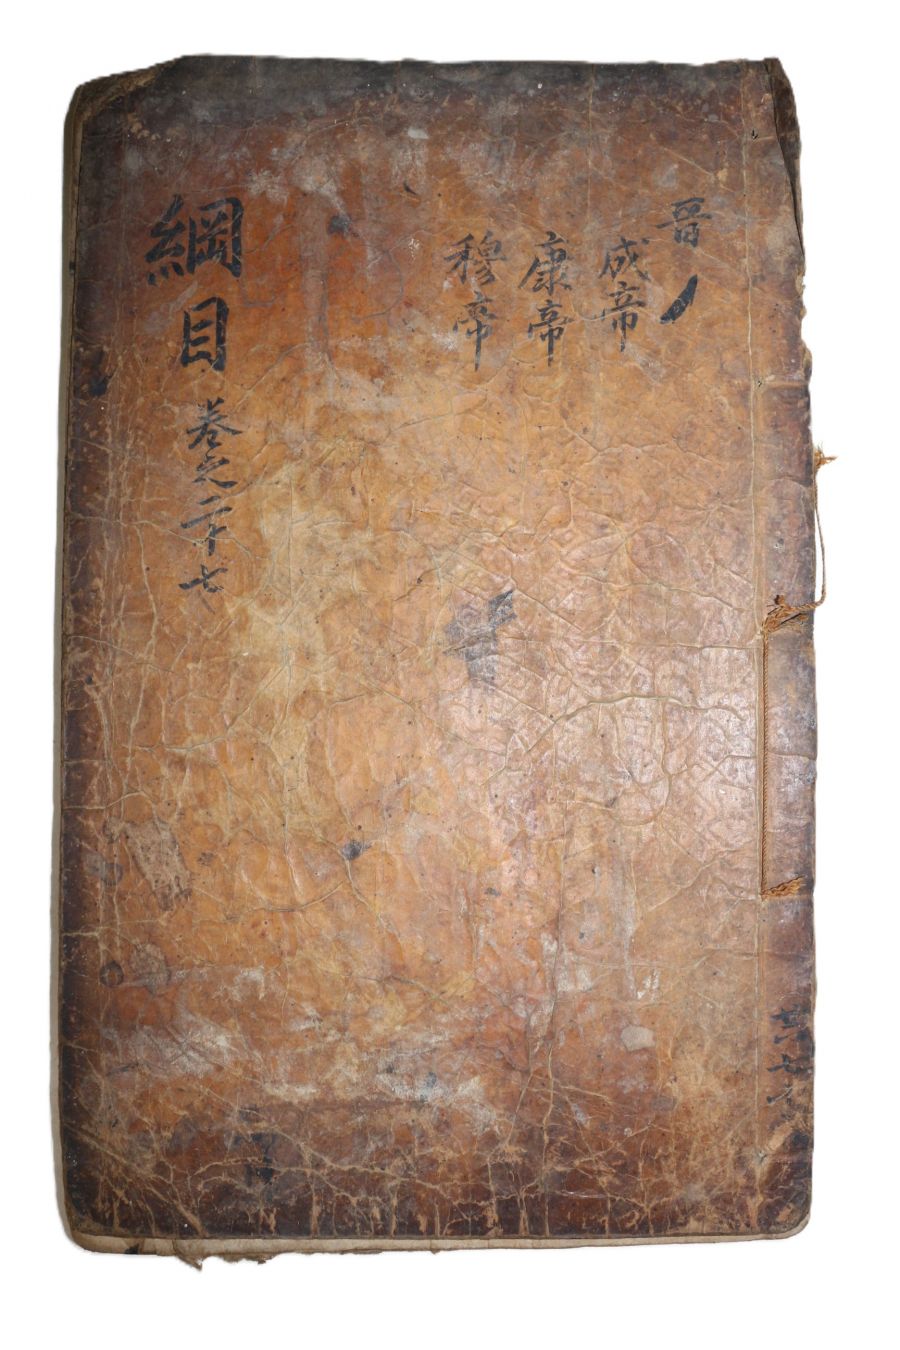 晋
成帝
康帝
穆帝
綱目 卷之二十七